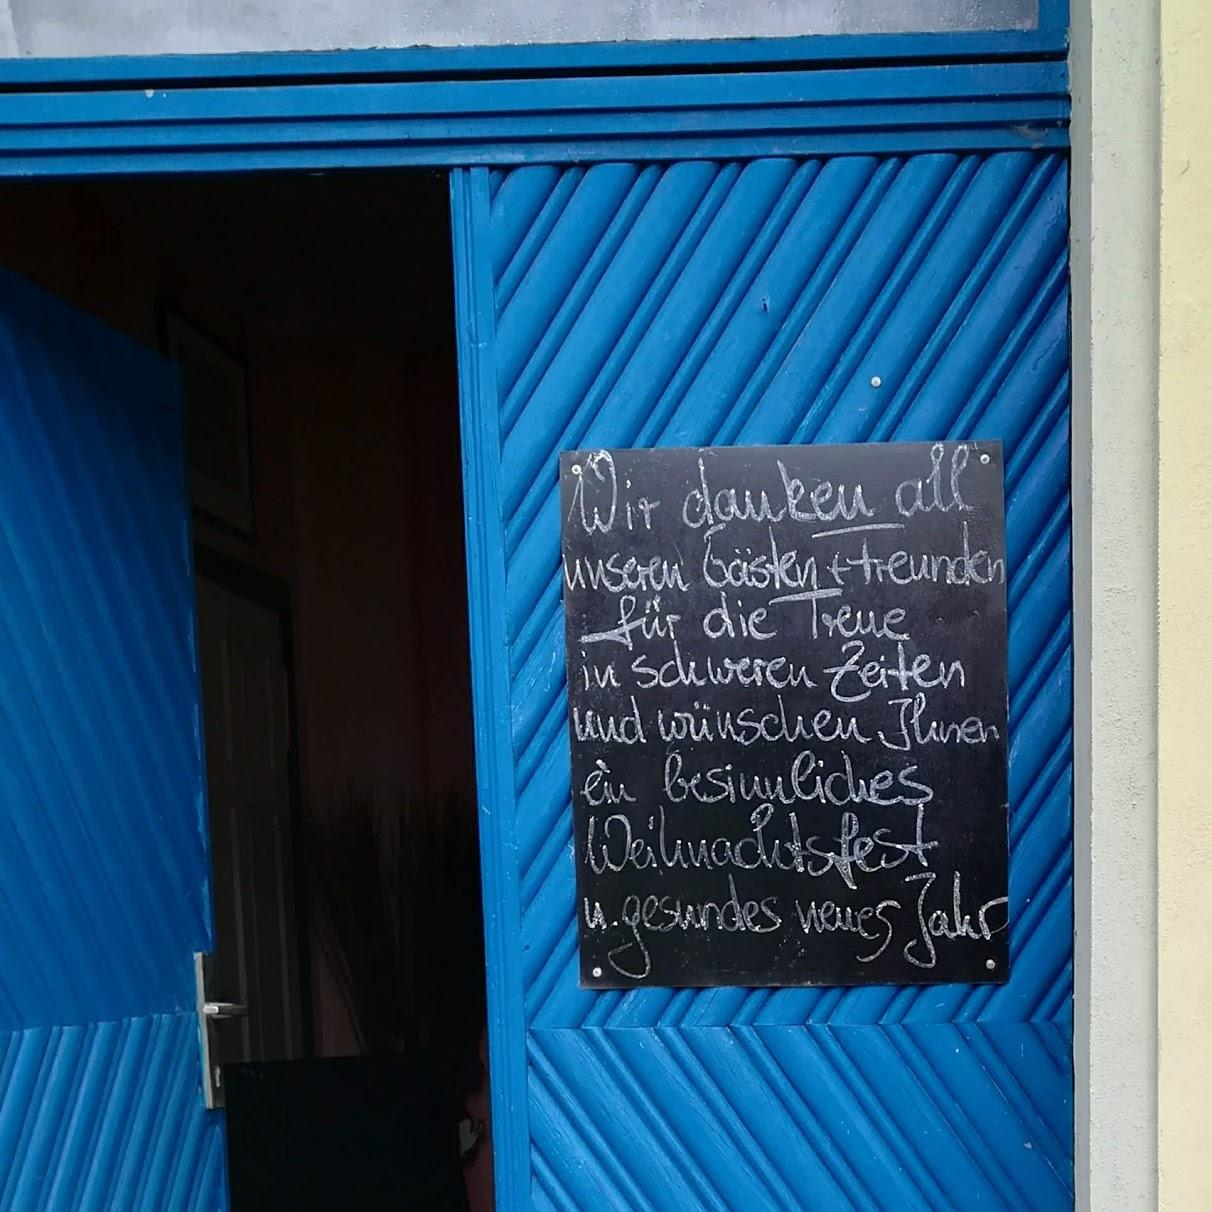 Wir danken all
unseren Gästen + Freunden
für die Treue
in schweren Zeiten
und wünschen Ihnen
ein besinnliches
Weihnachtsfest
u. gesundes neues Jahr